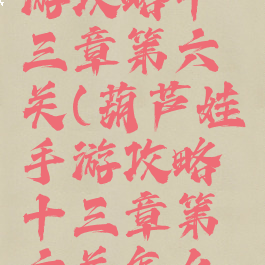 游攻略十
三章第六
关(葫芦娃
手游攻略
十三章第
六关怎么